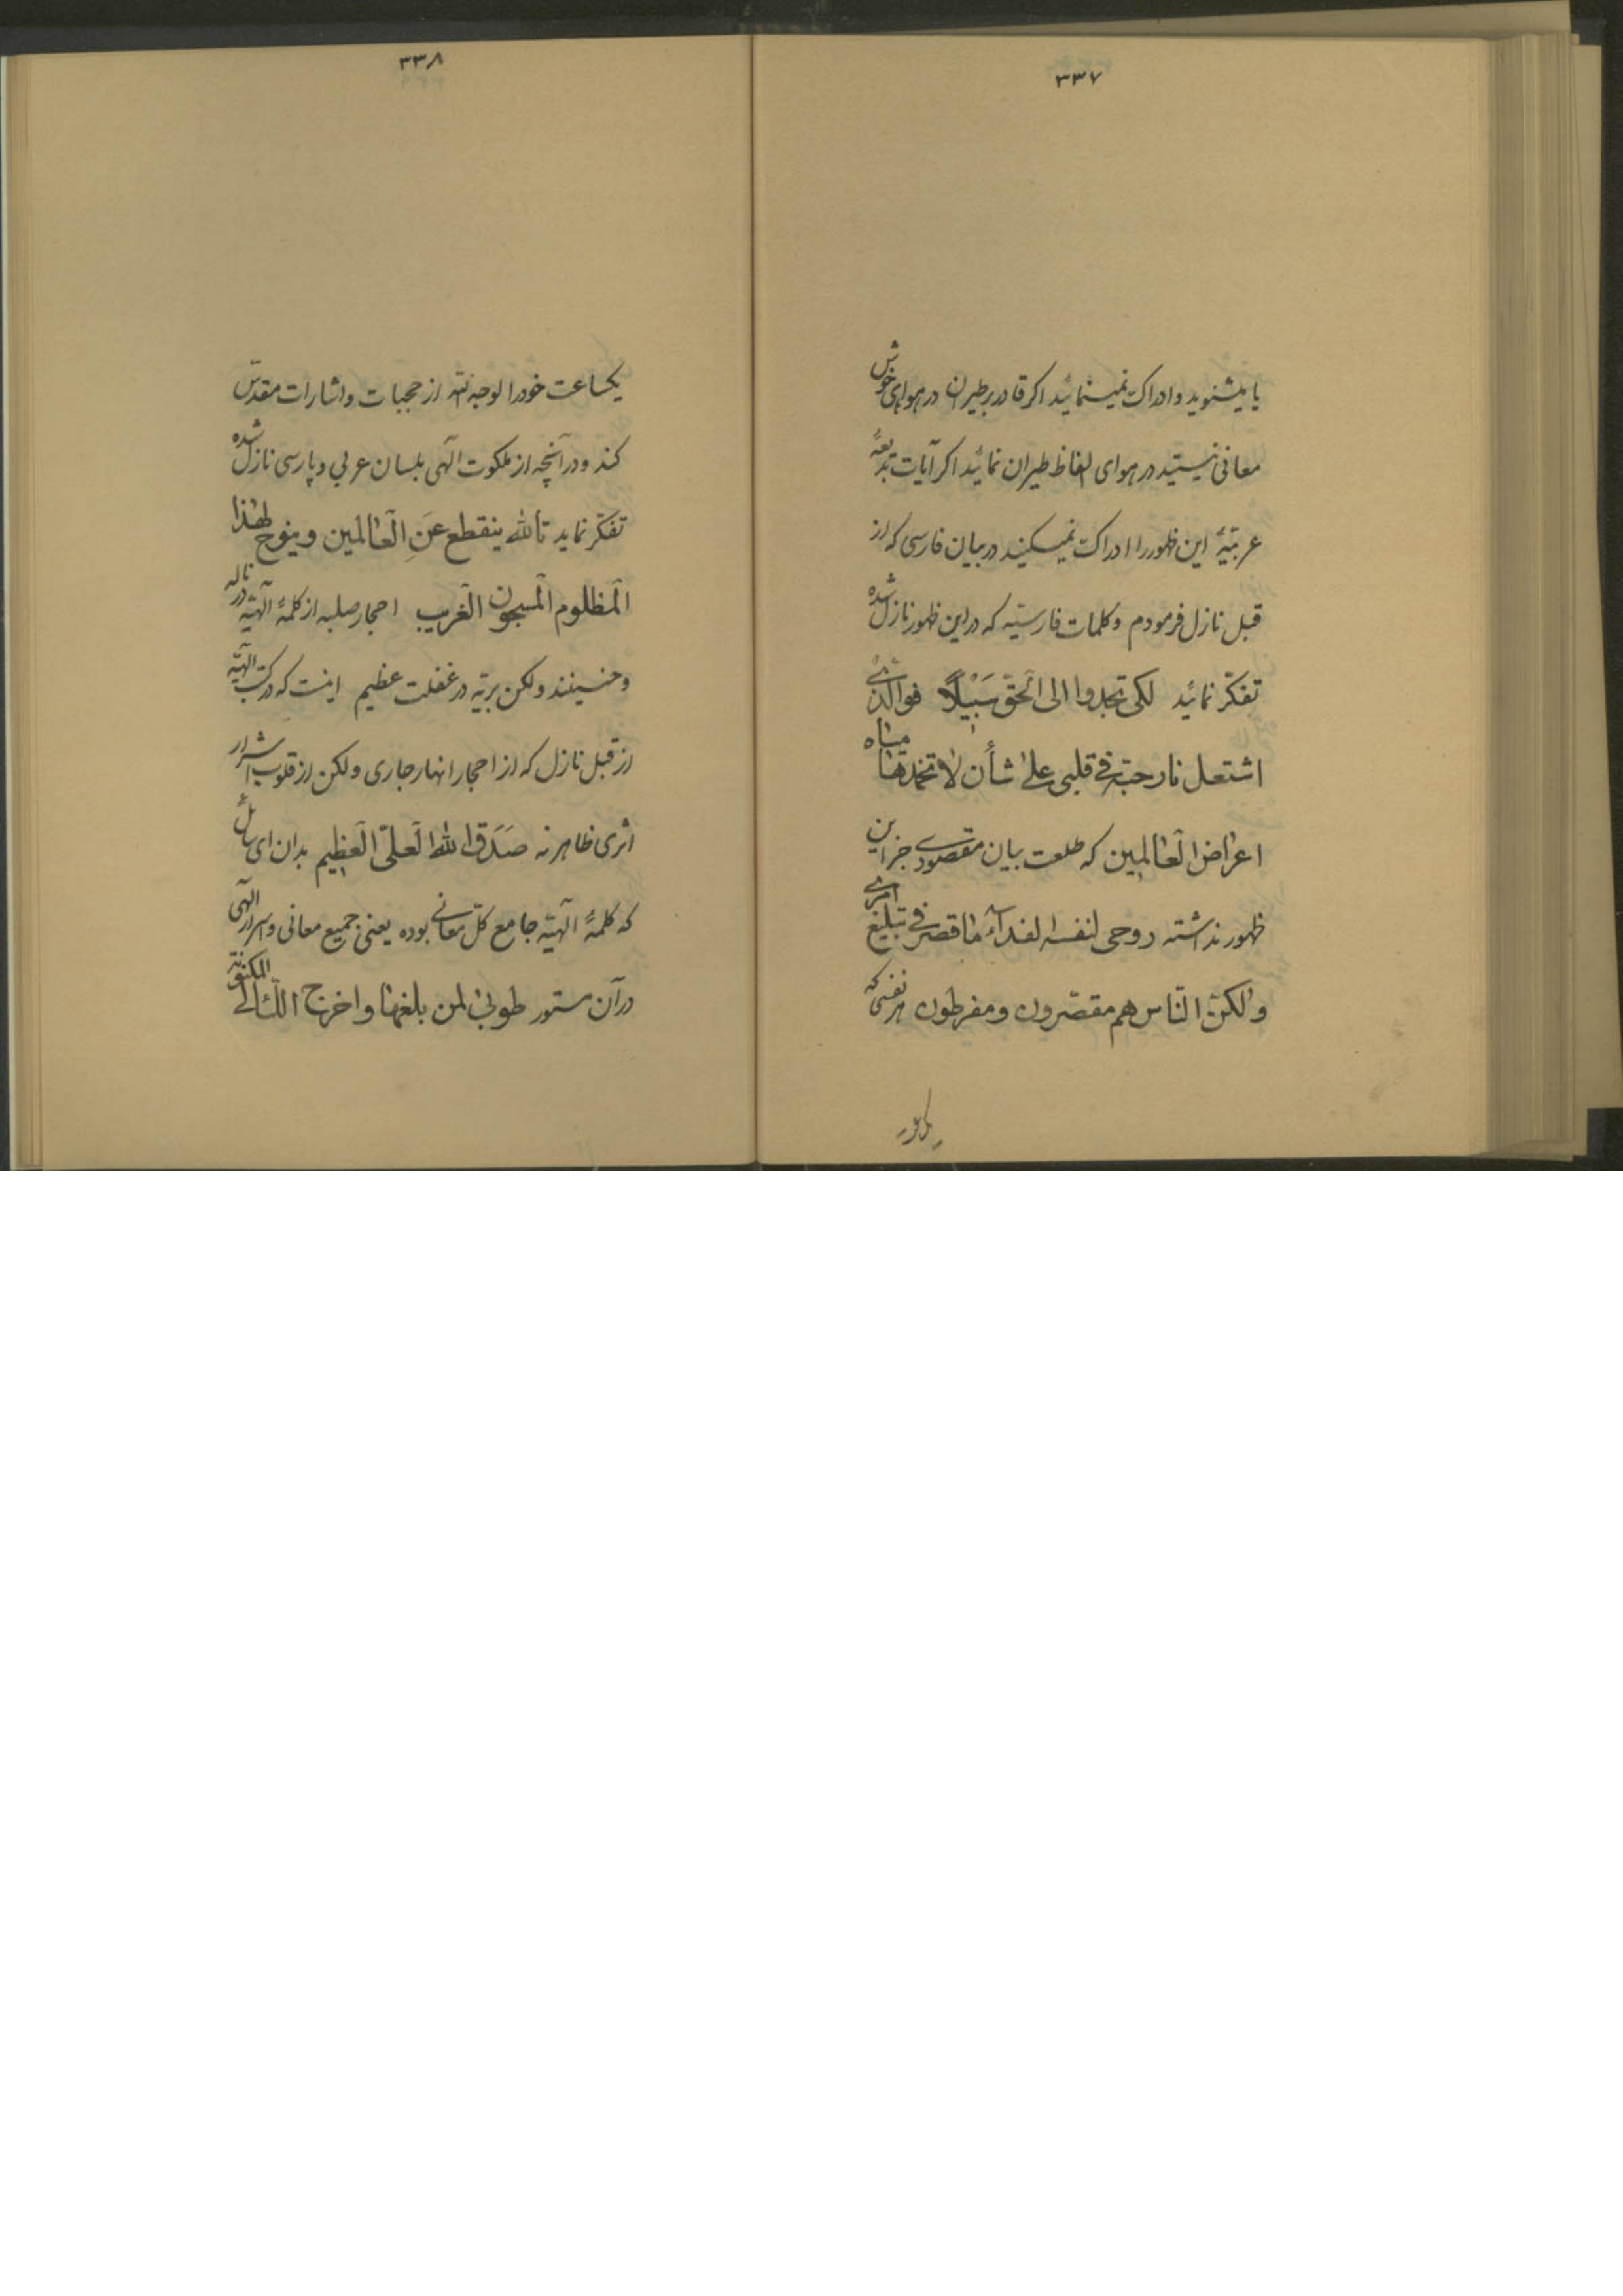 ۳۳۷
یا میشنوید و ادراک نمینمائید اکر قادر بر طیران در هوای خوش
معانی نیستید در هوای الفاظ طیران نمائید اکر آیات بدیعهٔ
عربیّهٔ این ظهور را ادراک نمیکنید در بیان فارسی که از
قبل نازل فرمودم و کلمات فارسیّه که در این ظهور نازل شده
تفکّر نمائید لکی تجدوا الی الحقّ سبیلاً فوالّذی
اشتعل نار حبّه فی قلبی علی شأن لا تخمدها میاه
اعراض العالمین که طلعت بیان مقصودی جز این
ظهور نداشته روحی لنفسه الفدآء ما قصر فی تبلیغ امری
ولکنّ النّاس هم مقصّرون و مفرطون هر نفسی که
۳۳۸
یکساعت خود را لوجه اللّه از حجبات و اشارات مقدّس
کند و در آنچه از ملکوت الهی بلسان عربی و پارسی نازل شده
تفکّر نماید تاللّه ینقطع عن العالمین و ینوح لهذا
المظلوم المسجون الغریب احجار صلبه از کلمهٔ الهیّه در ناله
و حنینند ولکن بریّه در غفلت عظیم اینست که در کتب الهیّه
از قبل نازل که از احجار انهار جاری ولکن از قلوب اشرار
اثری ظاهر نه صَدَق اللّه العلیّ العظیم بدان ای سائل
که کلمهٔ الهیّه جامع کلّ معانی بوده یعنی جمیع معانی و اسرار الهی
در آن مستور طوبی لمن بلغها و اخرج اللّئالی المکنونة